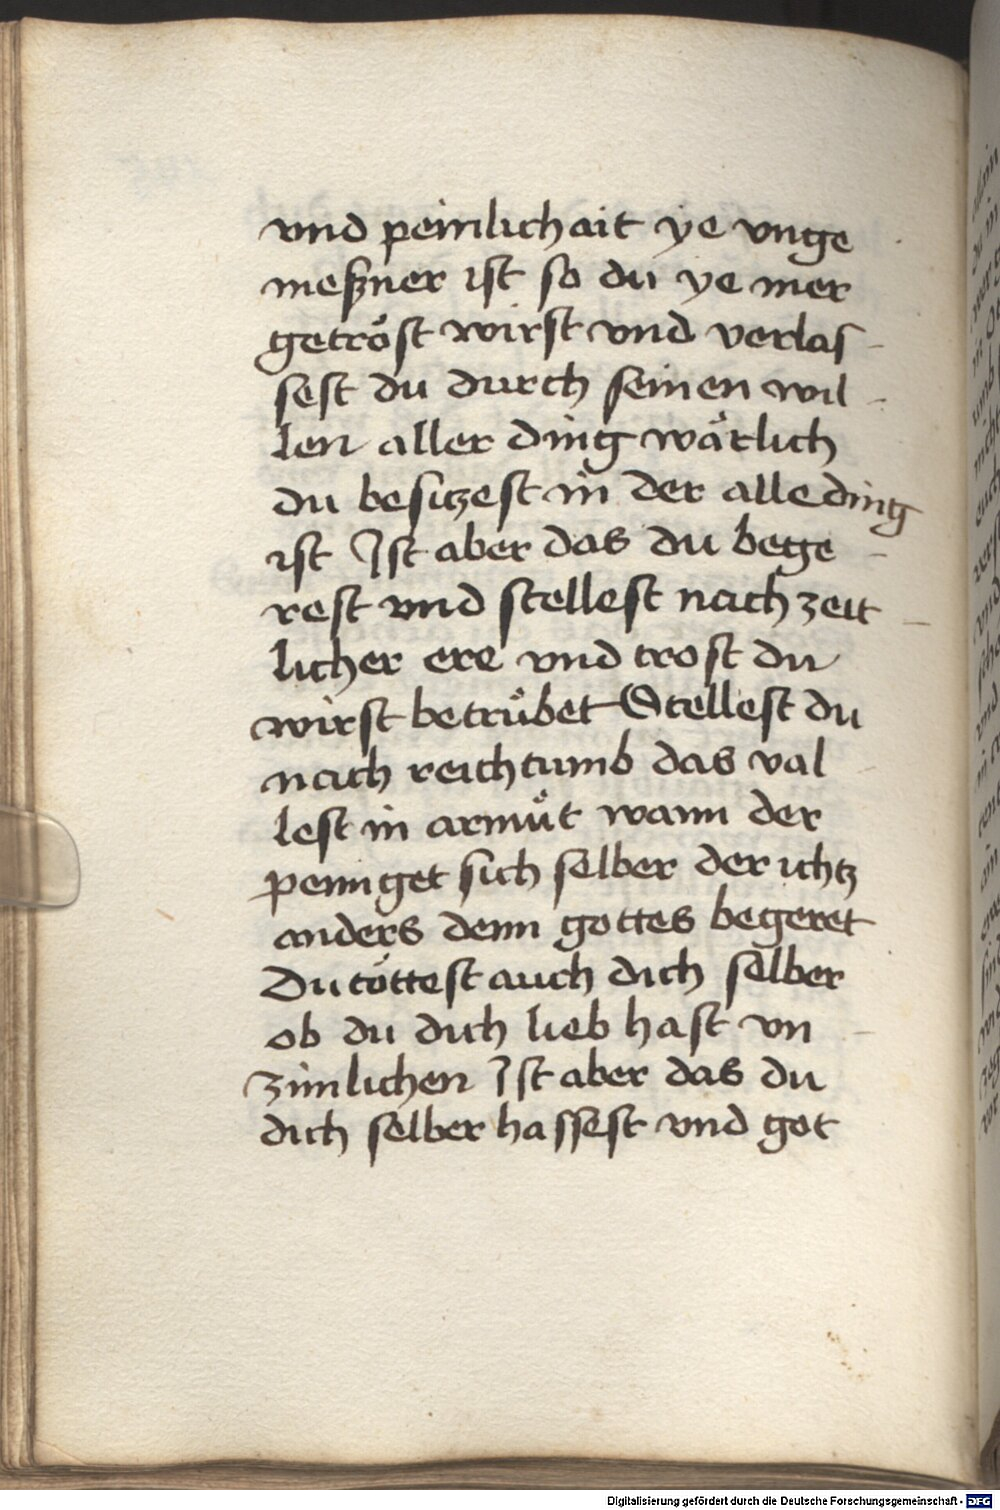 vnd peinlichait ye vnge
meßner ist so du ye mer
getröst wirst vnd verlas-
sest du durch seinen wil-
len aller ding wärlich
du besitzest in der alle ding
ist Ist aber das du bege-
rest vnd stellest nach zeit-
licher ere vnd trost du
wirst betrübet Stellest du
nach reichtumb das val-
lest in armuͦt wann der
peiniget sich selber der ichtz
anders denn gottes begeret
Du töttest auch dich selber
ob du dich lieb hast vn-
zimlichen Ist aber das du
dich selber hassest vnd got
Digitalisierung gefördert durch die Deutsche Forschungsgemeinschaft - DFG